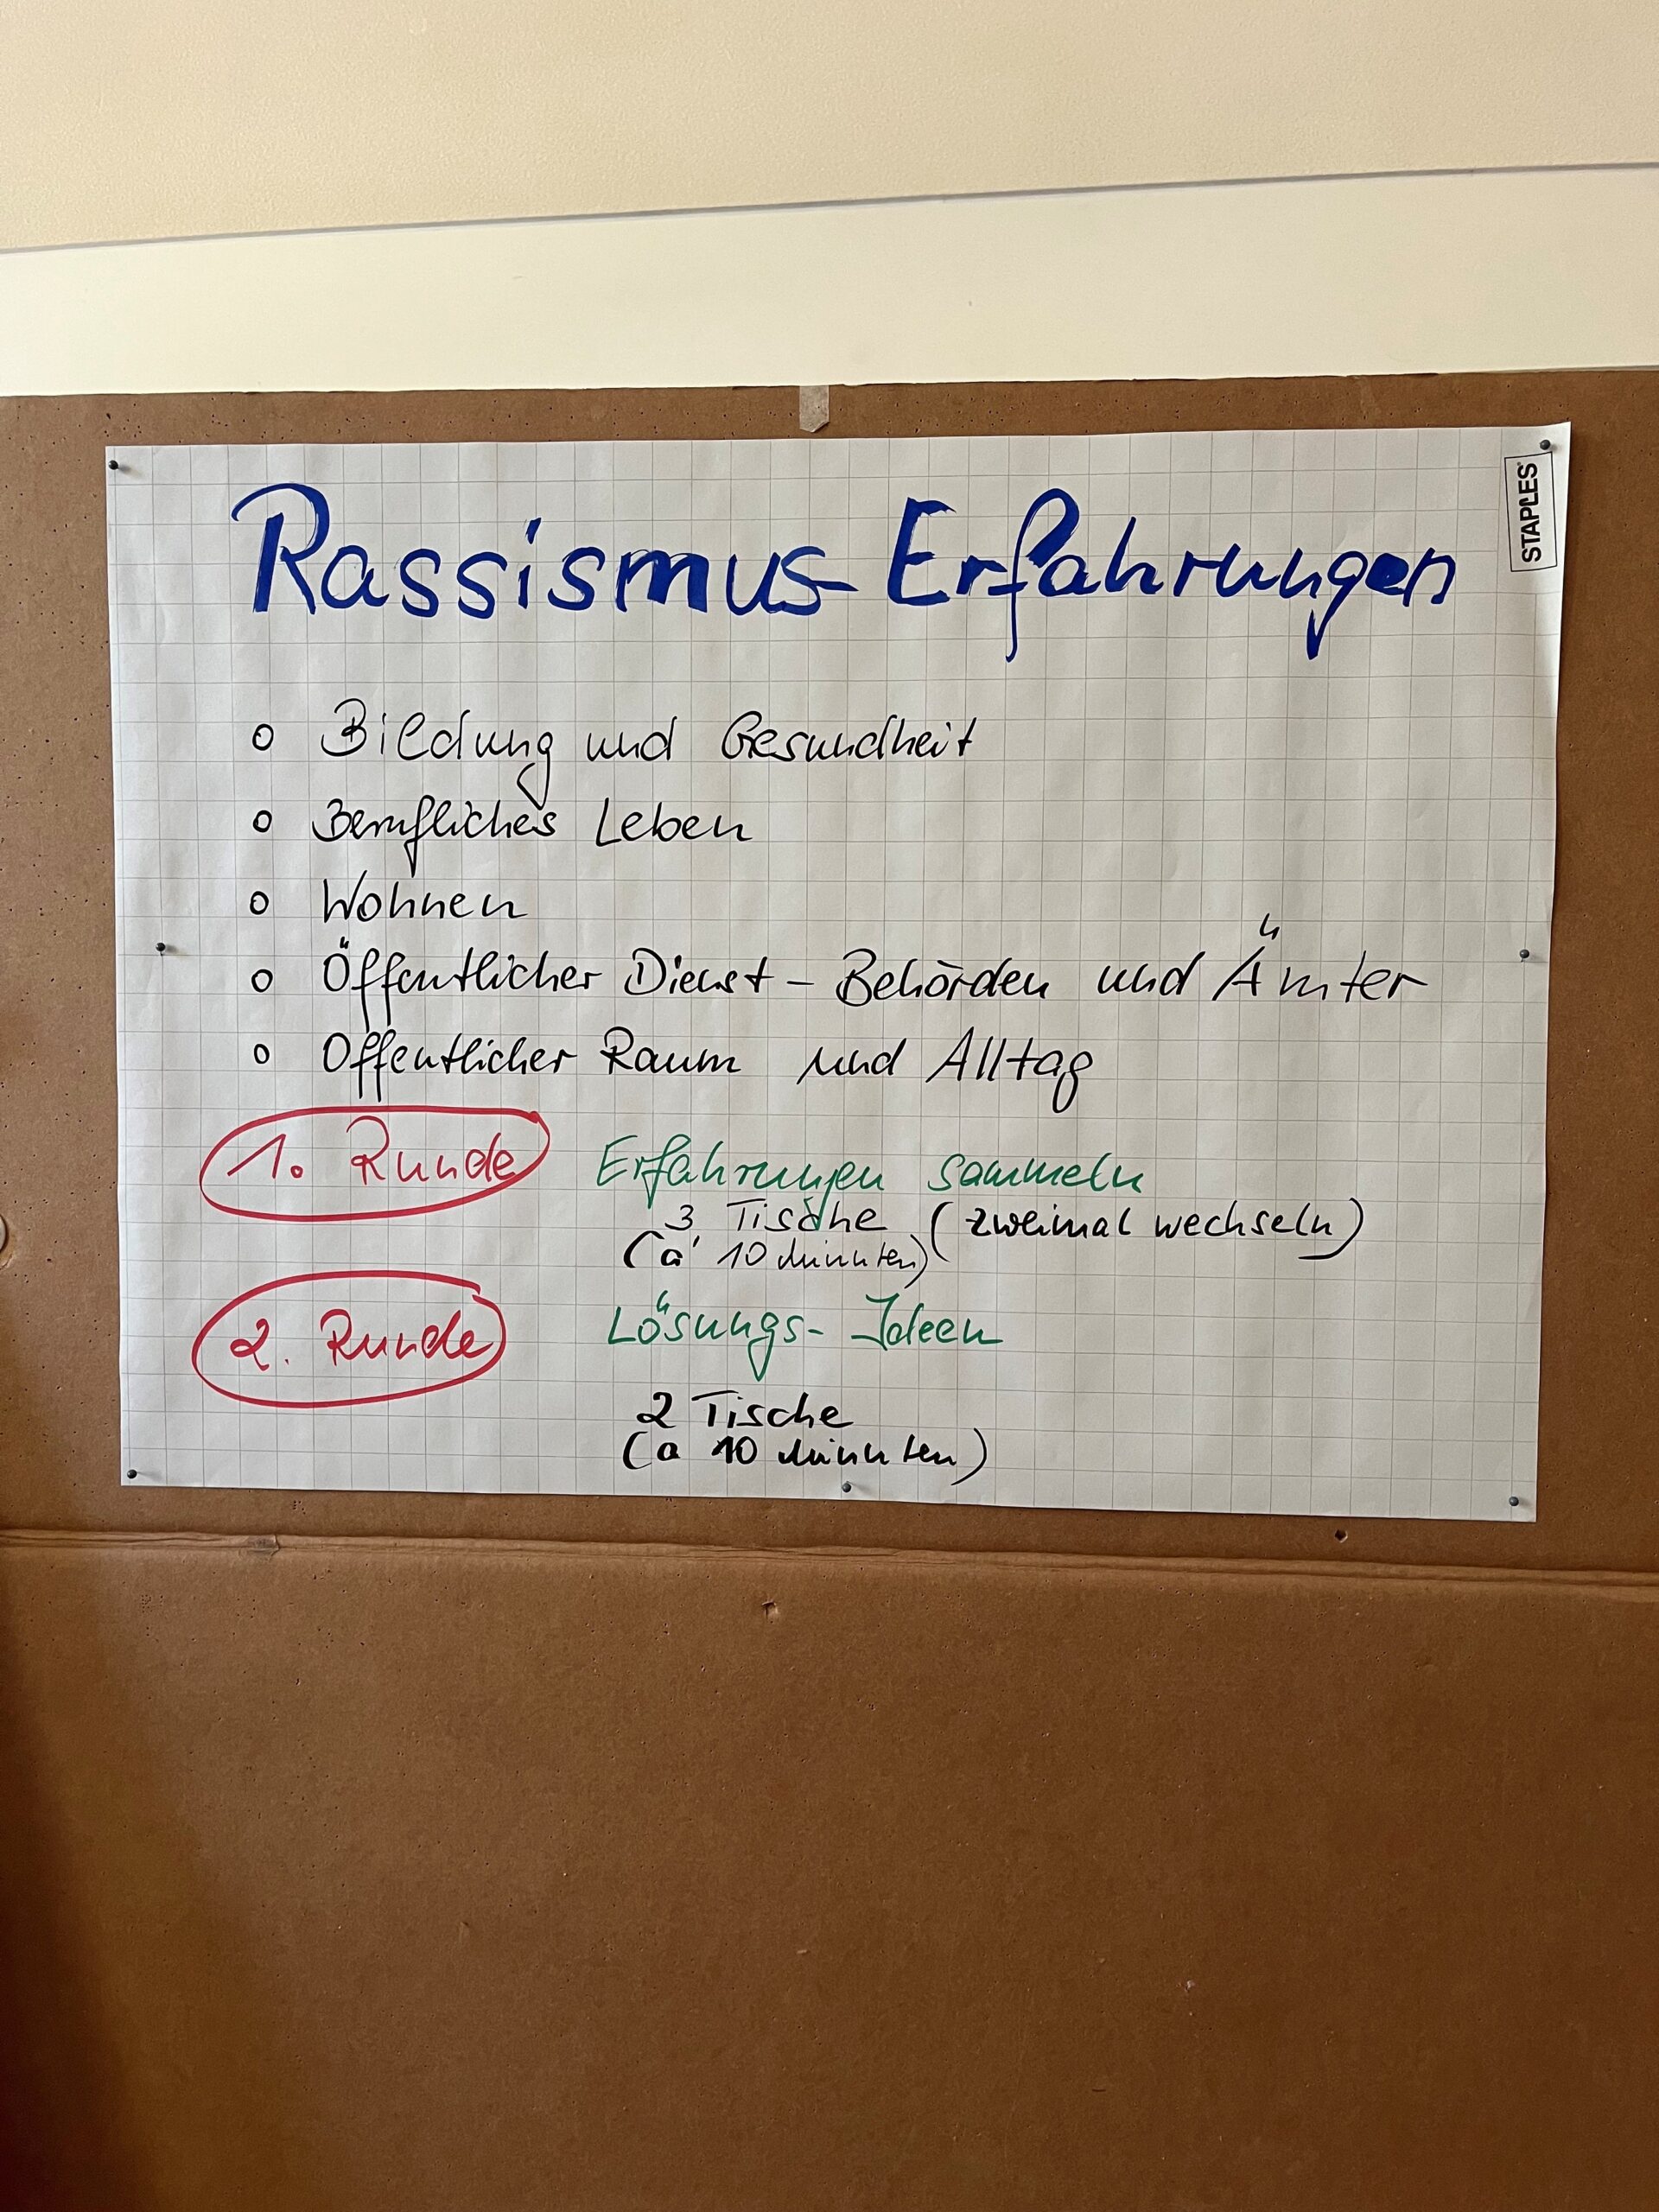 STAPLES
Rassismus-Erfahrungen
o Bildung und Gesundheit
o Berufliches Leben
o Wohnen
o Öffentlicher Dienst – Behörden und Ämter
o Offentlicher Raum und Alltag
1. Runde Erfahrungen sammeln
3 Tische (zweimal wechseln)
(á 10 Minuten)
2. Runde Lösungs-Ideen
2 Tische
(a 10 Minuten)